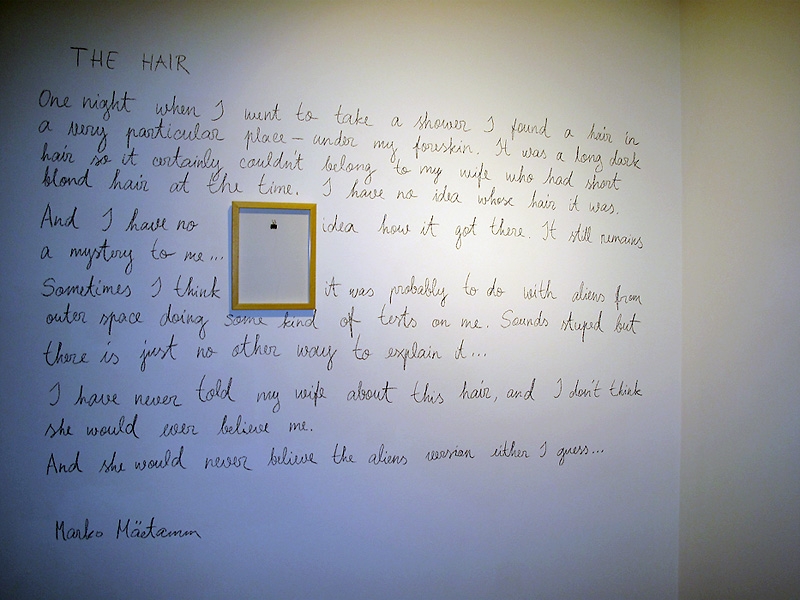 THE HAIR
One night when I went to take a shower I found a hair in
a very particular place – under my foreskin. It was a long dark
hair so it certainly couldn't belong to my wife who had short
blond hair at the time. I have no idea whose hair it was.
And I have no idea how it got there. It still remains
a mystery to me...
Sometimes I think it was probably to do with aliens from
outer space doing some kind of tests on me. Sounds stuped but
there is just no other way to explain it...
I have never told my wife about this hair, and I don't think
she would ever believe me.
And she would never believe the aliens version either I guess...
Marko Mäetamm